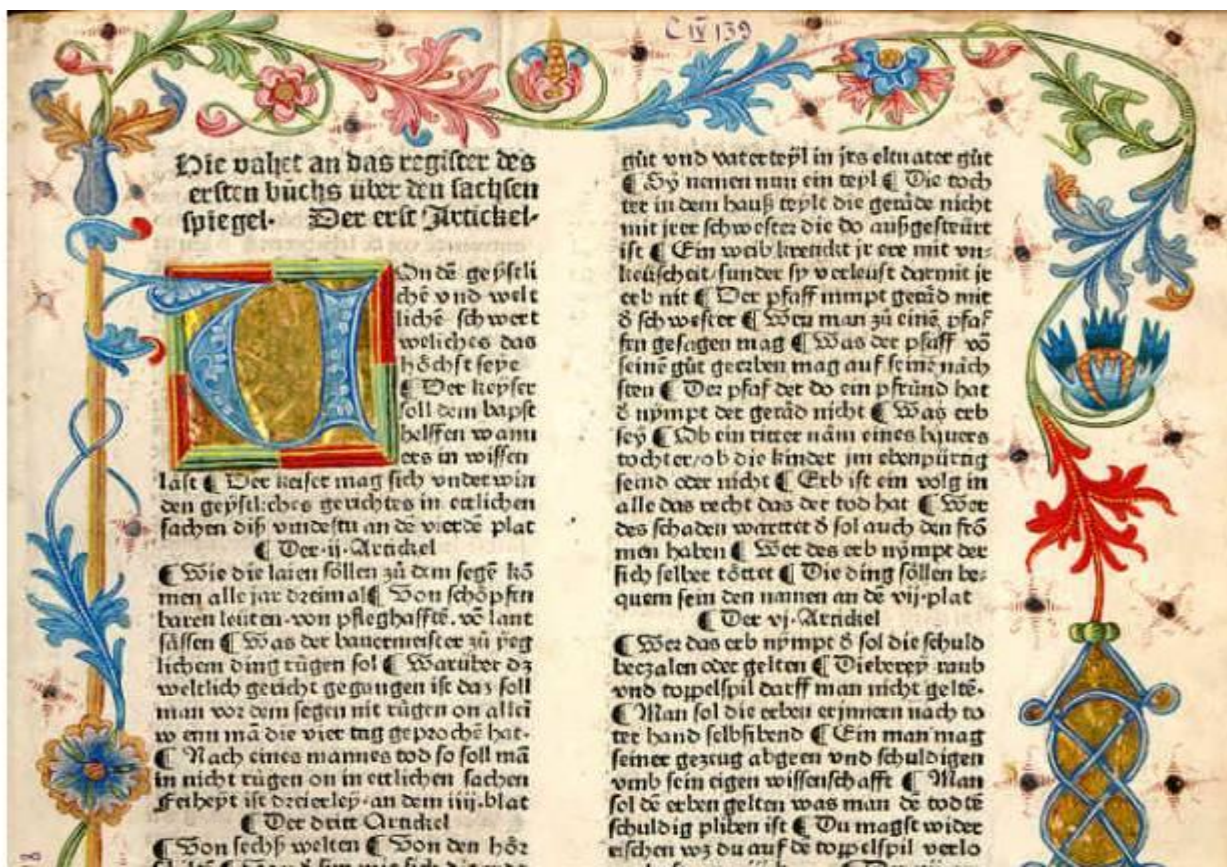 C IV 139
Hie vahet an das register des
ersten bůchs über den sachsen
spiegel. Der erst Artickel.
Von dē geystli
chē vnd welt
lichē schwert
weliches das
höchst seye
¶ Der keyser
soll dem bapst
helffen wann
ers in wissen
last ¶ Der keiser mag sich vnderwin
den geystliches gerichtes in ettlichen
sachen diß vindestu an dē vierdē plat
¶ Der .ij. Artickel
¶ Wie die laien söllen zů dem segē kō
men alle jar dreimal ¶ Von schöpffen
baren leüten. von pfleghafftē. vō lant
sässen ¶ Was der bauermeister zů yeg
lichem ding rügen sol ¶ Warüber dz
weltlich gericht gegangen ist daz soll
man vor dem segen nit rügen on allei
wenn mā die vier tag geprochē hat.
¶ Nach eines mannes tod so soll mā
in nicht rügen on in ettlichen sachen
Freiheyt ist dreierley. an dem iiij. blat
¶ Der dritt Artickel
¶ Von sechß welten ¶ Von den hör
gůt vnd vaterteyl in jrs eltuater gůt
¶ Sy nemen nun ein teyl ¶ Die toch
ter in dem hauß teylt die geräde nicht
mit jrer schwester die do außgesteürt
ist ¶ Ein weib krenckt jr ere mit vn-
keüscheit/sunder sy verleüst darmit jr
erb nit ¶ Der pfaff nimpt geräd mit
d̄ schwester ¶ Wen man zů einē pfaf
fen gesagen mag ¶ Was der pfaff vō
seinē gůt geerben mag auf seine näch
sten ¶ Der pfaf der do ein pfründ hat
d̄ nympt der geräd nicht ¶ Was erb
sey ¶ Ob ein ritter näm eines baurs
tochter/ob die kinder jm ebenpürtig
seind oder nicht ¶ Erb ist ein volg in
alle das recht das der tod hat ¶ Wer
des schaden warttet d̄ sol auch den frō
men haben ¶ Wer des erb nympt der
sich selber töttet ¶ Die ding söllen be-
quem sein den namen an dē vij. plat
¶ Der vj. Artickel
¶ Wer das erb nympt d̄ sol die schuld
beczalen oder gelten ¶ Dieberey raub
vnd toppelspil darff man nicht geltē.
¶ Man sol die erben erjnnern nach to
ter hand selbsibend ¶ Ein man mag
seiner gezeug abgeen vnd schuldigen
vmb sein eigen wissenschafft ¶ Man
sol dē erben gelten was man dē todtē
schuldig pliben ist ¶ Du magst wider
eischen wz du auf dē toppelspil verlo